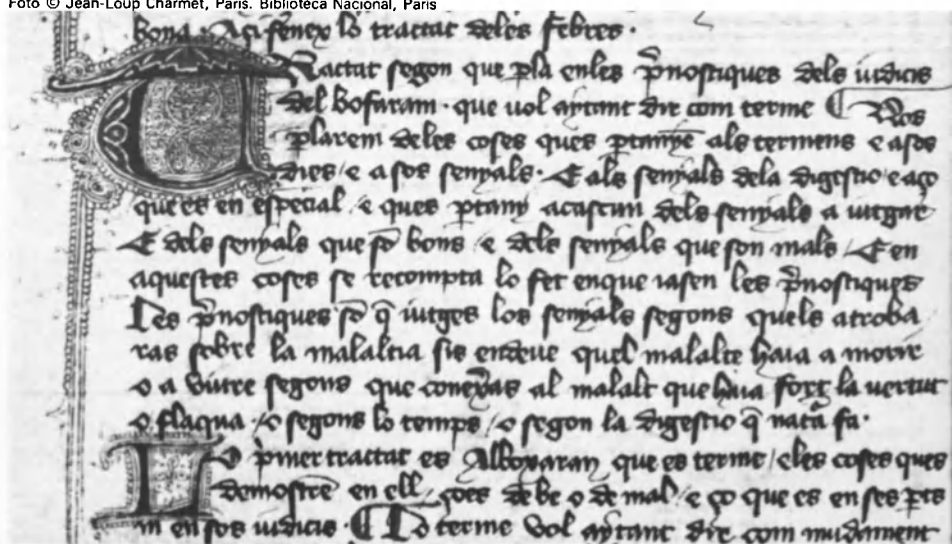 Foto © Jean-Loup Charmet, Paris. Biblioteca Nacional, Paris
bona · Açi feneix lo tractat deles febres ·
Tractat segon que pla enles pnostiques dels iudicis
del bofaram · que uol aytant dir com terme ¶ Nos
plarem deles coses ques ptanyẽ als termens e asos
dies / e a sos senyals · E als senyals dela digestio / e aço
que es en especial / e ques ptany acascun dels senyals a iutgar
E dels senyals que sõ bons / e dels senyals que son mals / E en
aquestes coses se recompta lo fet enque iasen les pnostiques
Les pnostiques sõ q̃ iutges los senyals segons quels atroba
ras sobre la malaltia sis endeue quel malalte haia a morir
o a viure segons que conexras al malalt que haia fort la vertut
o flaqua / o segons lo temps / o segon la digestio q̃ natã fa ·
Lo pmer tractat es Alboxaran que es terme / e les coses ques
demostrẽ en ell / çoes de be o de mal / e ço que es en ses pts
ni en sos iudicis · ¶ Lo terme vol aytant dir com mudament